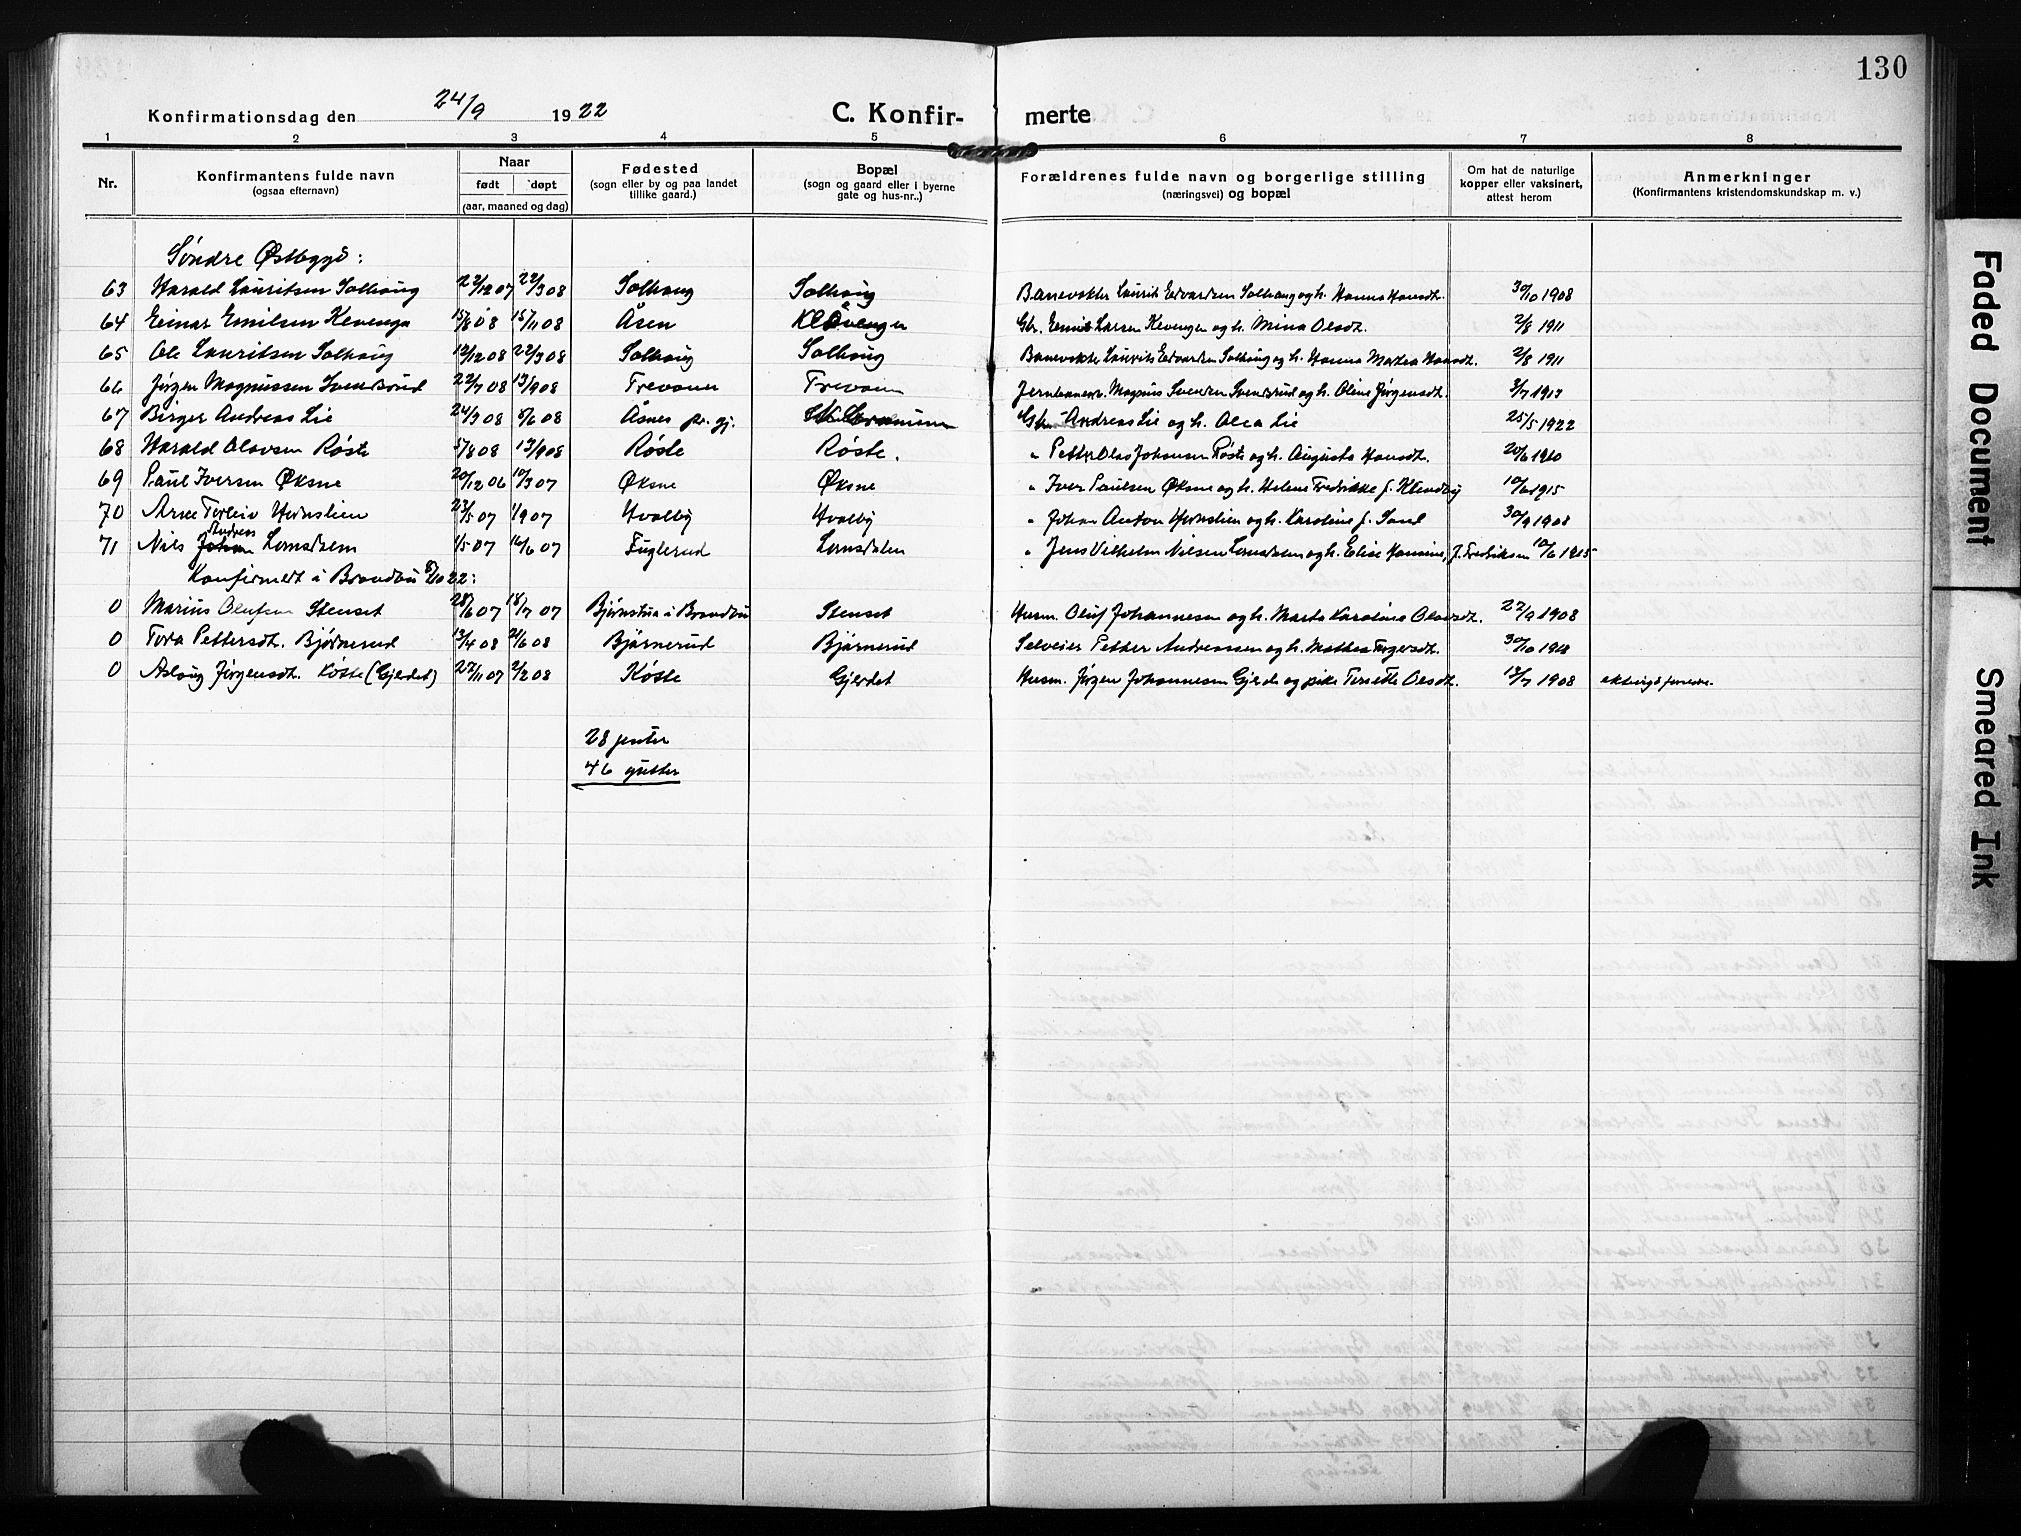 130
Konfirmationsdag den 24/9 1922
C. Konfir- merte
1 2 3 4 5 6 7 8
Nr. Konfirmantens fulde navn (ogsaa efternavn) Naar født døpt (aar, maaned og dag) Fødested (sogn eller by og paa landet tillike gaard.) Bopæl (sogn og gaard eller i byerne gate og hus-nr..) Forældrenes fulde navn og borgerlige stilling (næringsvei) og bopæl Om hat de naturlige kopper eller vaksinert, attest herom Anmerkninger (Konfirmantens kristendomskundskap m. v.)
Söndre Østbygd:
63 Harald Lauritsen Solhaug 22/3 08 Solhaug Solhaug Banevokter Laurits Edvardsen Solhaug og h. Hanna Hansdt. 30/10 1908
64 Einar Emilsen Kevenga 15/8 08 15/11 08 Åsen Gbr. Emil Larsen Kevengen og h. Mina Olsdt. 2/8 1911
65 Ole Lauritsen Solhaug 12/12 08 22/3 08 Solhaug Solhaug Banevokter Laurits Edvardsen Solhaug og h. Hanna Mathea Hansdt. 2/8 1911
66 Jørgen Magnussen Svendsrud 22/7 08 13/9 08 Trevann Trevann Jernbanearb. Magnus Svendsen Svendsrud og h. Oline Jørgensdt.
67 Birger Andreas Lie 24/3 08 8/6 08 Åsnes pr. gj. Gbr. Andreas Lie og h. Olea Lie 25/5 1922
68 Harald Olavsen Røste 5/8 08 13/9 08 Røste Røste. " Petter Olas Johansen Røste og h. Augusta Hansdt. 20/6 1910
69 Paul Iversen Øksne 20/12 06 10/3 07 Øksne Øksne " Iver Paulsen Øksne og h. Helene Fredrikke f. Klundby 10/6 1915
70 Arne Torleiv Hernslien 23/5 07 1/9 07 Hvalby Hvalby " Johan Anton Hernslien og h. Karoline f. Sand 30/9 1908
71 Nils Johan Andreas Lomsdalen 1/5 07 16/6 07 Fuglerud Lomsdalen " Jens Vilhelm Nilsen Lomsdalen og h. Elise Hansine, f. Fredriksen 10/6 1915
Konfirmert i Brandbu 8/10 22:
0 Marius Olufsen Stenset 28/6 07 18/7 07 Bjørnstua i Brandbu Stenset Husm. Oluf Johannesen og h. Marte Karoline Olavsdt. 22/9 1908
0 Tora Pettersdt. Bjørnerud 13/4 08 21/6 08 Bjørnerud Bjørnerud Selveier Petter Andreassen og h. Mathea Torgersdt. 30/10
0 Aslaug Jørgensdt. Røste (Gjerdet) 22/11 07 2/2 08 Røste Gjerdet Husm. Jørgen Johannesen Gjerde og pike Tomette Olsdt. 13/7 1908
28 jenter
46 gutter
Faded Document
Smeared Ink